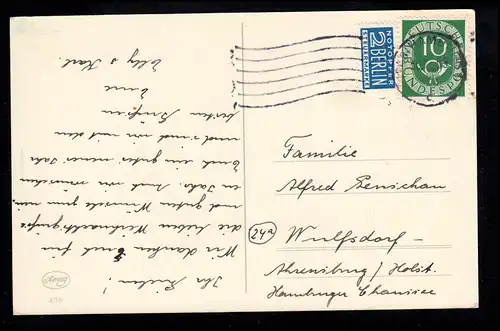 Ihr Lieben!
Wir danken Euch für
die lieben Weihnachtsgrüße
und guten Wünsche zum neu-
en Jahr. Auch wir wünschen
Euch ein gutes neues Jahr
und sind wir mit den
besten Grüßen
Eure
Elly & Karl.
NOTOPFER
2 BERLIN
STEUERMARKE
DEUTSCHE
BUNDESPOST
10
Familie
Alfred Zenischau
24a
Wulfsdorf-
Ahrensburg/Holst.
Hamburger Chaussee